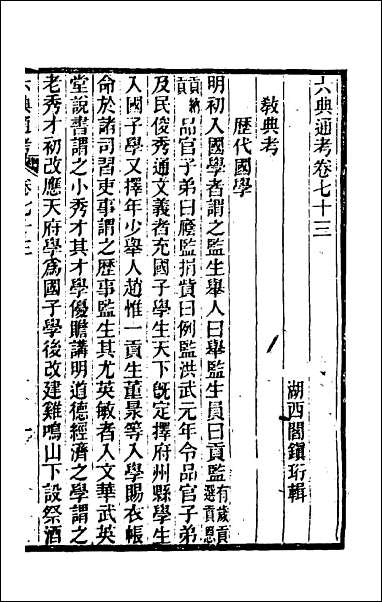 六典通考卷七十三
湖西閻鎮珩輯
教典考
歷代國學
明初入國學者謂之監生舉人曰舉監生員曰貢監有歲貢選貢恩
貢納貢品官子弟曰廕監捐貲曰例監洪武元年令品官子弟
及民俊秀通文義者充國子學生天下旣定擇府州縣學生
入國子學又擇年少舉人趙惟一貢生董㬎等入學賜衣帳
命於諸司習吏事謂之歷事監生其尤英敏者入文華武英
堂說書謂之小秀才其才學優贍講明道德經濟之學謂之
老秀才初改應天府學爲國子學後改建雞鳴山下設祭酒
六典通考
卷七十三
一